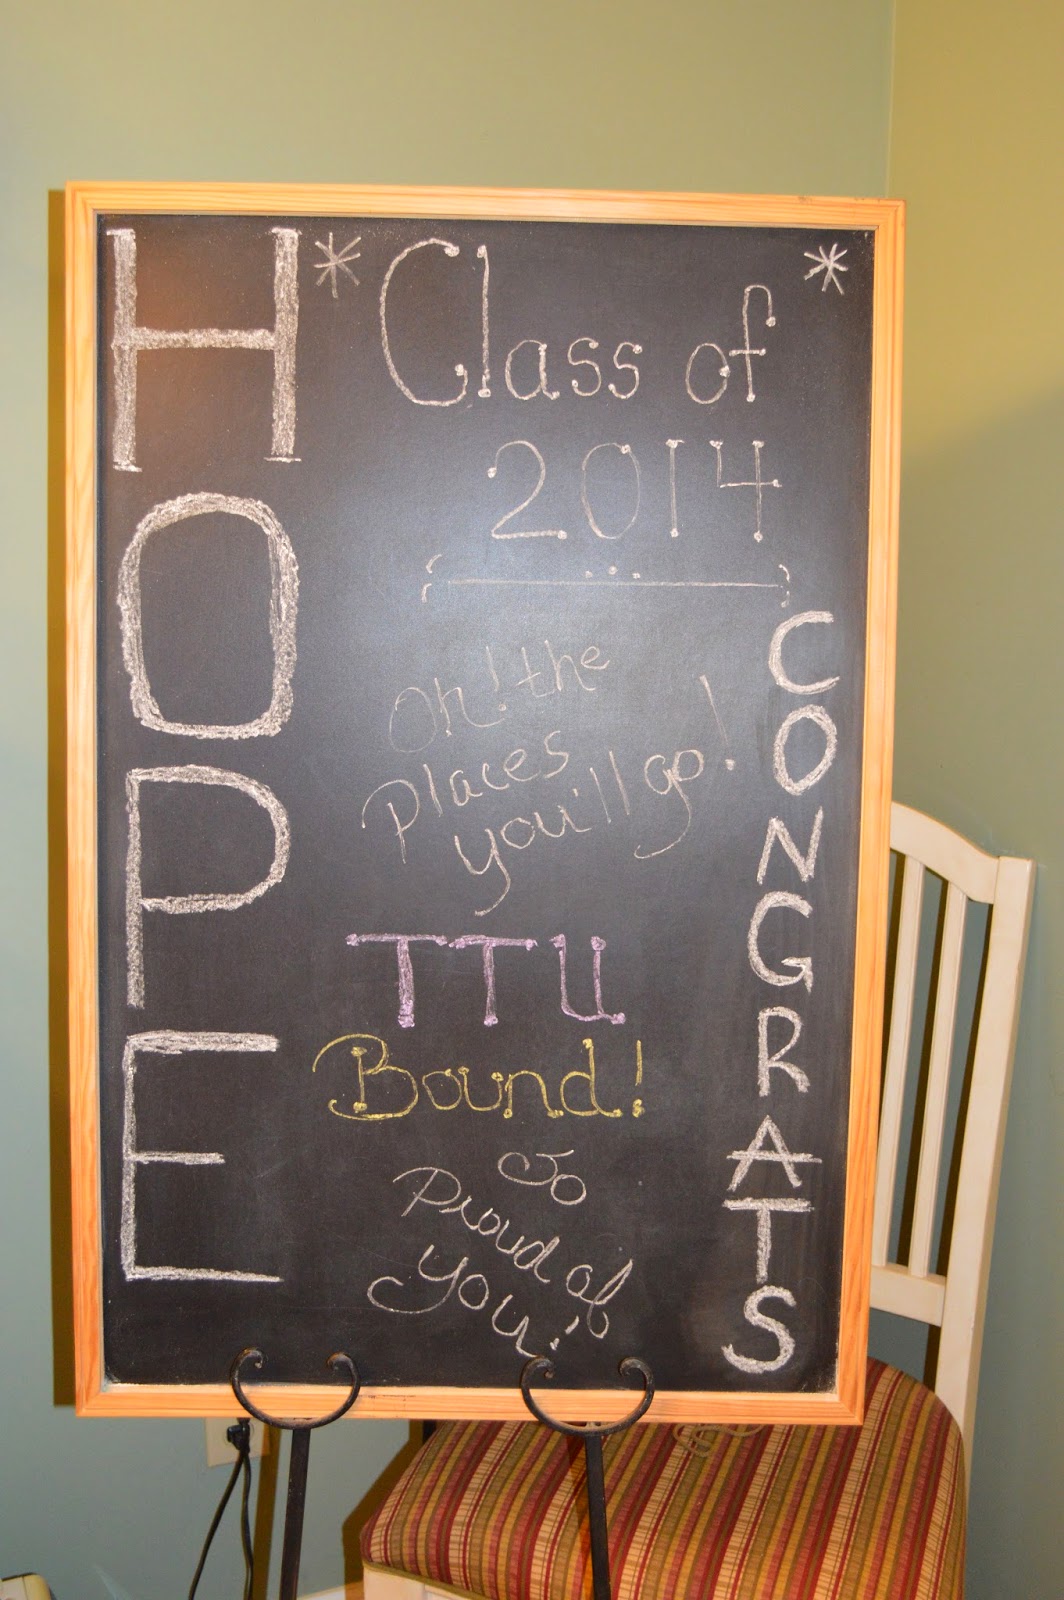 HOPE
* Class of *
2014
Oh! the
Places
you'll go!
TTU
Bound!
So
Proud of
you!
CONGRATS